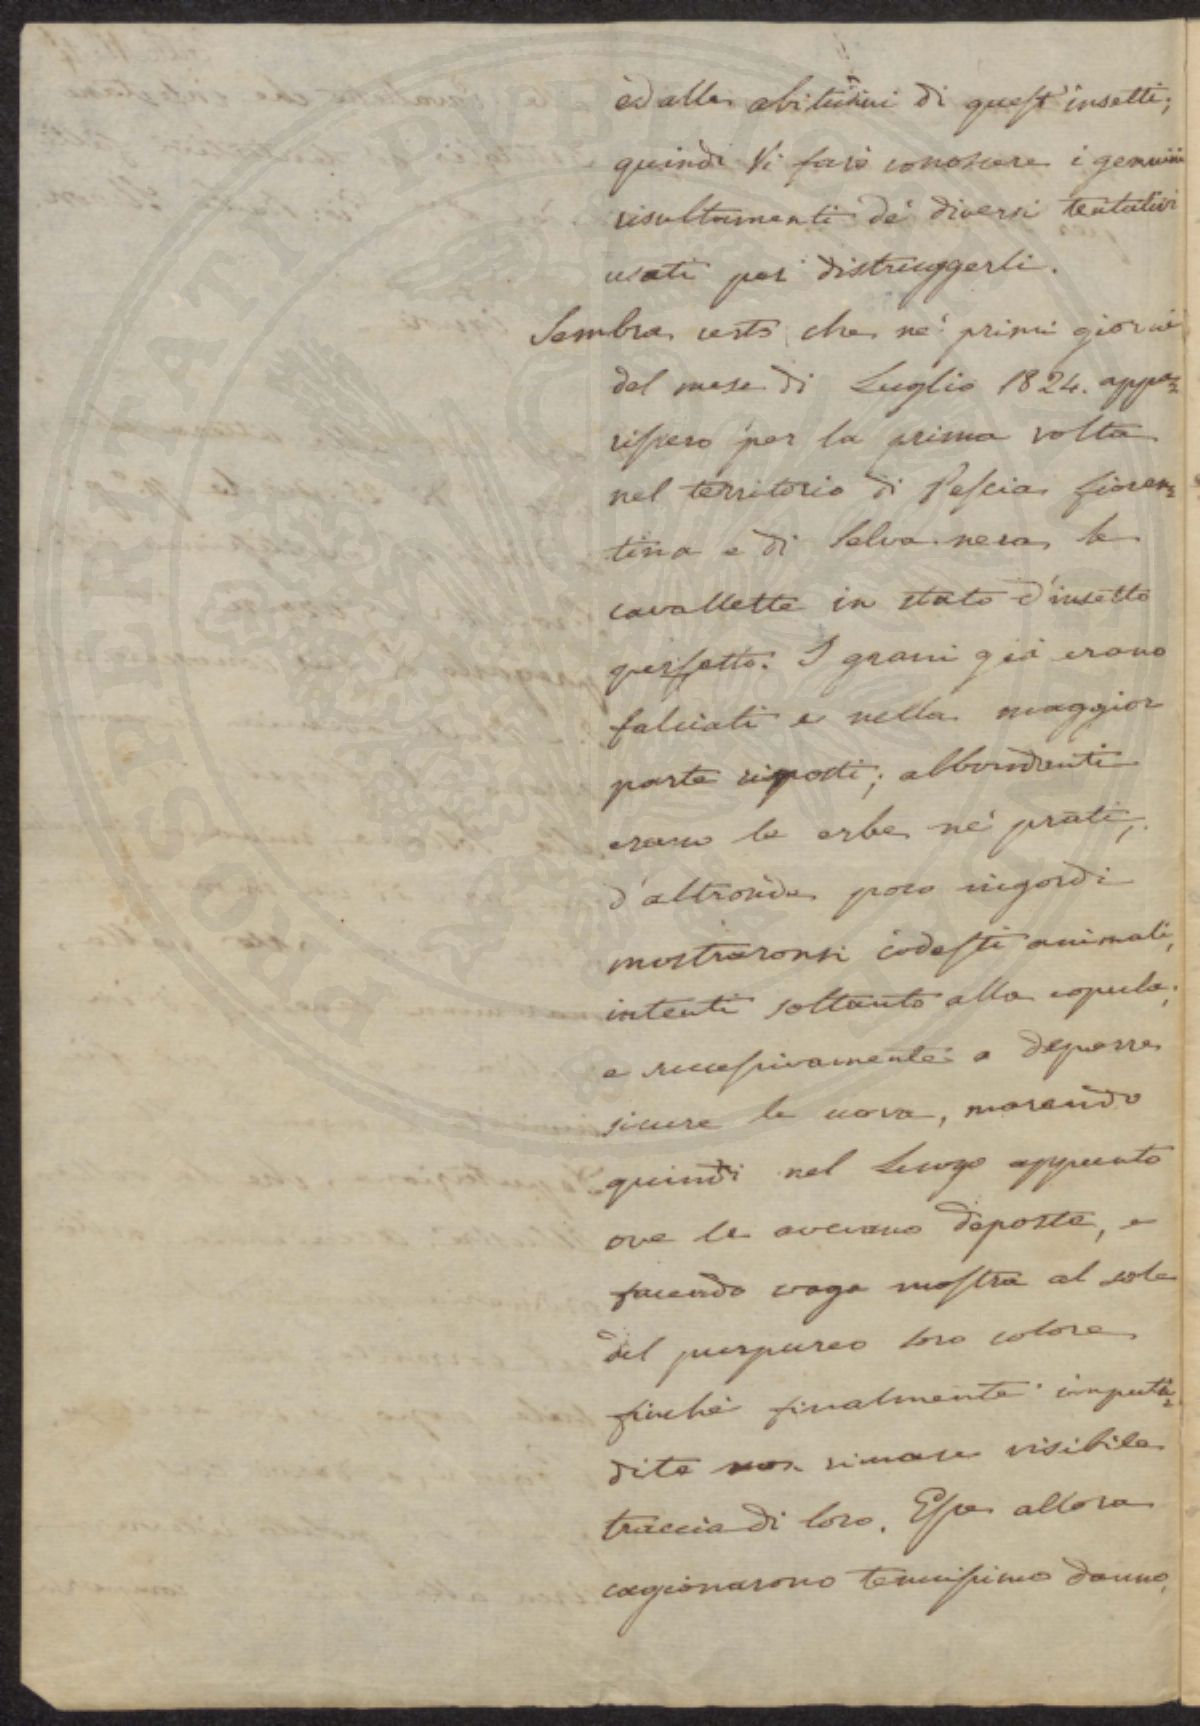 ed alle abitudini di quest'insetti;
quindi Vi farò conoscere i genuini
risultamenti de' diversi tentativi
usati per distruggerli.
Sembra certo che ne' primi giorni
del mese di Luglio 1824. appa=
rissero per la prima volta
nel territorio di Pescia fioren=
tina e di Selva nera le
cavallette in stato d'insetto
perfetto. I grani già erano
falciati e nella maggior
parte riposti; abbondanti
erano le erbe ne' prati;
d'altronde poco ingordi
mostraronsi codesti animali,
intenti soltanto alla copula;
e successivamente a deporre
sicure le uova, morendo
quindi nel luogo appunto
ove le avevano deposte, e
facendo vaga mostra al sole
del purpureo loro colore
finchè finalmente imputri=
dite non rimase visibile
traccia di loro. Esse allora
cagionarono tenuissimo danno,